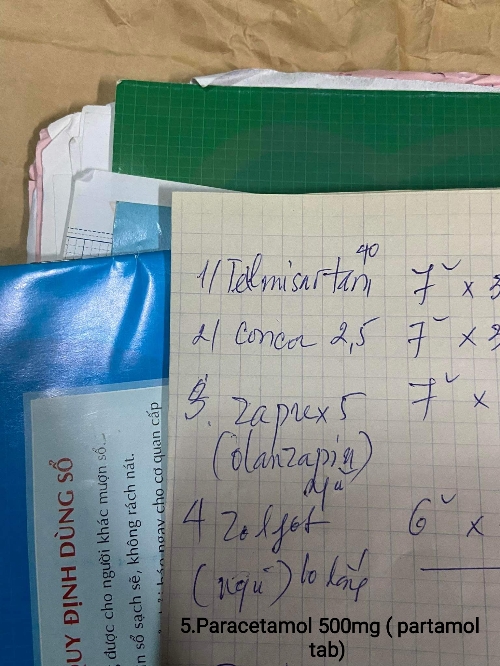 40
1) Telmisartan 7v x 3
2) Conco 2,5 7v x 3
3. Zaprex 5 7v x
(olanzapin)
ngủ
4 Zolfot 6v x
(ngủ) lo lắng
5.Paracetamol 500mg ( partamol
tab)
QUY ĐỊNH DÙNG SỔ
được cho người khác mượn sổ...
n sổ sạch sẽ, không rách nát.
ngay cho cơ quan cấp